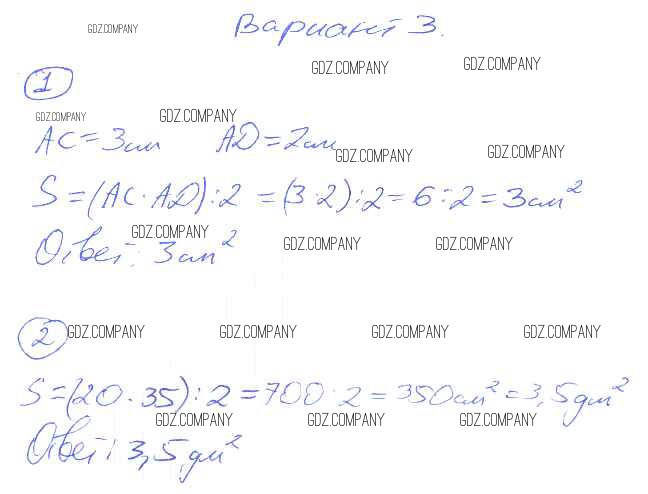 GDZ.COMPANY Вариант 3.
GDZ.COMPANY GDZ.COMPANY
1
GDZ.COMPANY GDZ.COMPANY
AC=3см AD=2см
GDZ.COMPANY GDZ.COMPANY
S=(AC·AD):2=(3·2):2=6:2=3см²
GDZ.COMPANY GDZ.COMPANY GDZ.COMPANY
Ответ: 3см²
2 GDZ.COMPANY GDZ.COMPANY GDZ.COMPANY GDZ.COMPANY
S=(20·35):2=700:2=350см²=3,5дм²
GDZ.COMPANY GDZ.COMPANY GDZ.COMPANY
Ответ: 3,5дм²